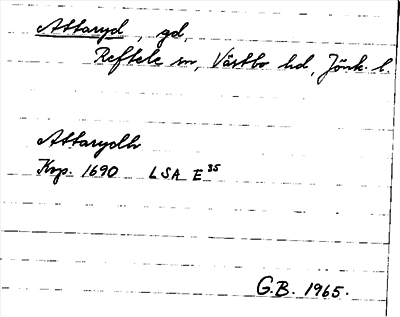 Attaryd, gd,
Reftele sn, Västbo hd, Jönk. l.
Attarydh
Kop. 1690 LSA E 35
G.B. 1965.